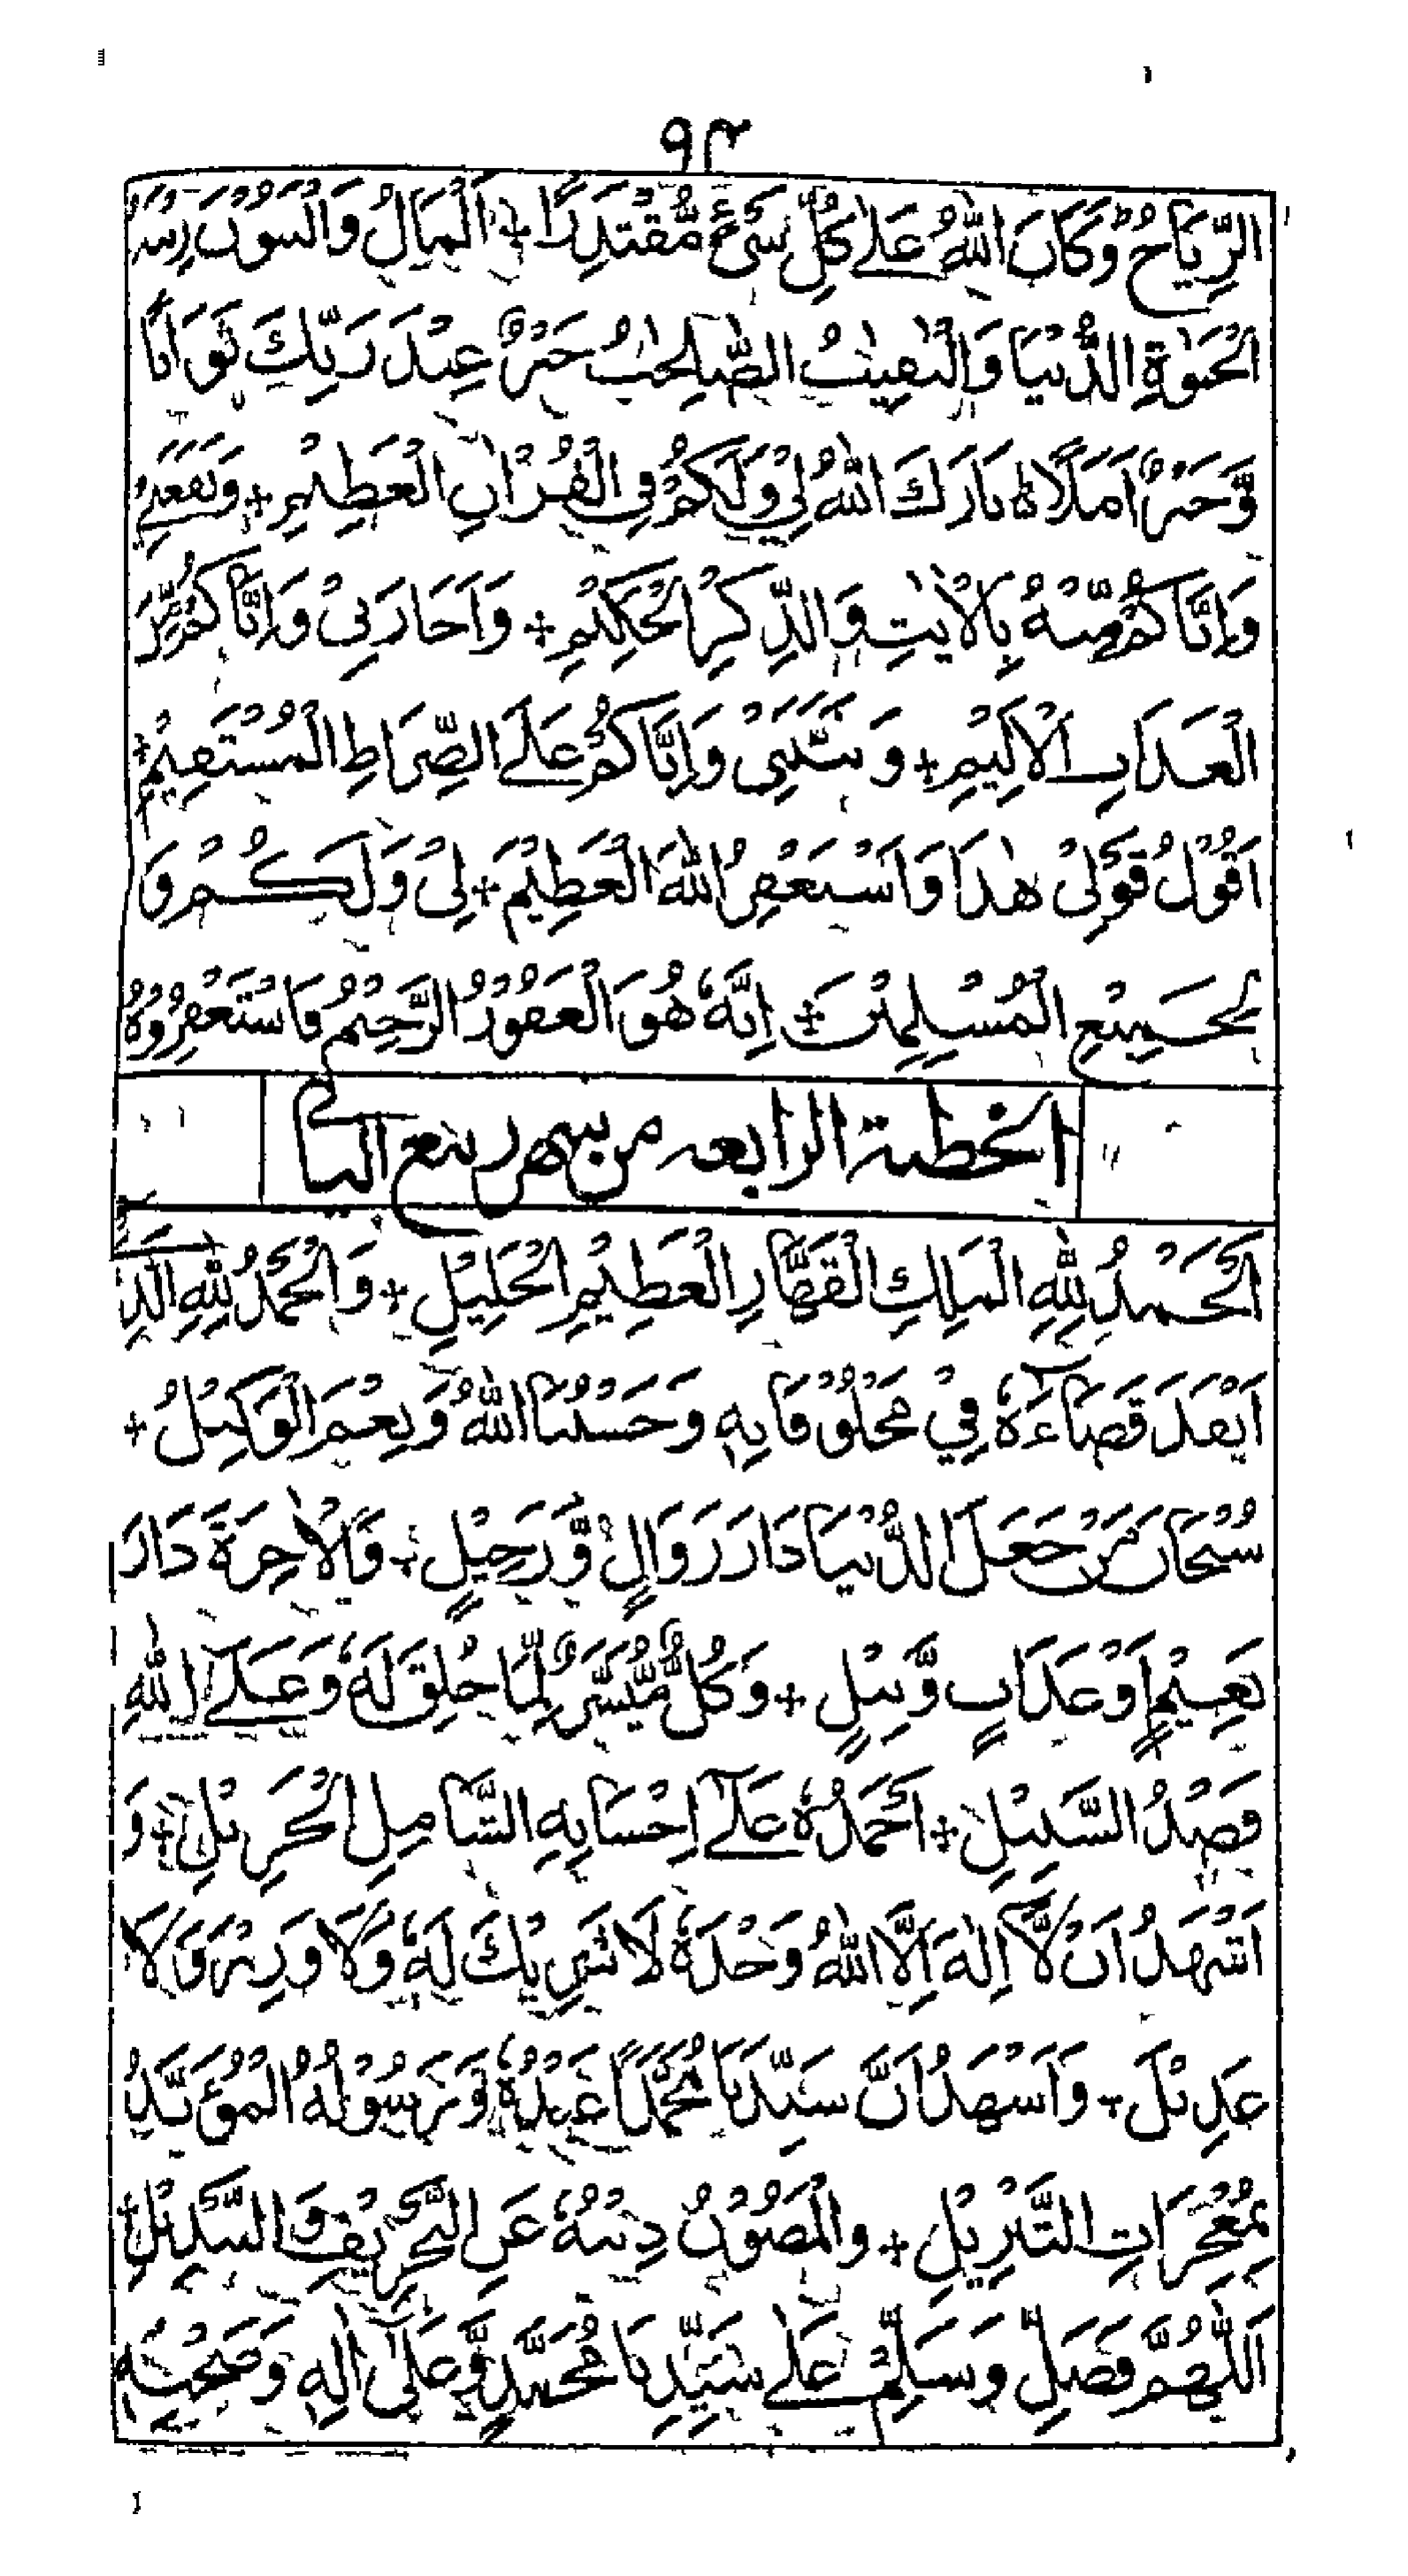 ٩٣
الرِّيَاحُ وَكَانَ اللّٰهُ عَلٰى كُلِّ شَيْءٍ مُّقْتَدِرًا + اَلْمَالُ وَالْبَنُوْنَ زِيْنَةُ
الْحَيٰوةِ الدُّنْيَا وَالْبٰقِيٰتُ الصّٰلِحٰتُ خَيْرٌ عِنْدَ رَبِّكَ ثَوَابًا
وَّخَيْرٌ اَمَلًا ۝ بَارَكَ اللّٰهُ لِيْ وَلَكُمْ فِي الْقُرْاٰنِ الْعَظِيْمِ + وَنَفَعَنِيْ
وَاِيَّاكُمْ مِّنْهُ بِالْاٰيٰتِ وَالذِّكْرِ الْحَكِيْمِ + وَاَجَارَنِيْ وَاِيَّاكُمْ مِّنَ
الْعَذَابِ الْاَلِيْمِ + وَثَبَّتَنِيْ وَاِيَّاكُمْ عَلَى الصِّرَاطِ الْمُسْتَقِيْمِ +
اَقُوْلُ قَوْلِيْ هٰذَا وَاَسْتَغْفِرُ اللّٰهَ الْعَظِيْمَ + لِيْ وَلَكُمْ وَ
لِجَمِيْعِ الْمُسْلِمِيْنَ + اِنَّهٗ هُوَ الْغَفُوْرُ الرَّحِيْمُ فَاسْتَغْفِرُوْهُ
الخطبة الرابعه من شهر ربيع الثاني
اَلْحَمْدُ لِلّٰهِ الْمَلِكِ الْقَهَّارِ الْعَظِيْمِ الْجَلِيْلِ + وَالْحَمْدُ لِلّٰهِ الَّذِيْ
اَنْفَذَ قَضَآءَهٗ فِيْ مَخْلُوْقَاتِهٖ وَحَسْبُنَا اللّٰهُ وَنِعْمَ الْوَكِيْلُ +
سُبْحَانَ مَنْ جَعَلَ الدُّنْيَا دَارَ زَوَالٍ وَّرَحِيْلٍ + وَالْاٰخِرَةَ دَارَ
نَعِيْمٍ اَوْ عَذَابٍ وَّبِيْلٍ + وَكُلٌّ مُّيَسَّرٌ لِّمَا خُلِقَ لَهٗ وَعَلَى اللّٰهِ
قَصْدُ السَّبِيْلِ + اَحْمَدُهٗ عَلٰٓى اِحْسَانِهِ الشَّامِلِ الْجَزِيْلِ + وَ
اَشْهَدُ اَنْ لَّآ اِلٰهَ اِلَّا اللّٰهُ وَحْدَهٗ لَا شَرِيْكَ لَهٗ وَلَا وَزِيْرَ وَلَا
عَدِيْلَ + وَاَشْهَدُ اَنَّ سَيِّدَنَا مُحَمَّدًا عَبْدُهٗ وَرَسُوْلُهُ الْمُؤَيَّدُ
بِمُعْجِزَاتِ التَّنْزِيْلِ + وَالْمَصُوْنُ دِيْنُهٗ عَنِ التَّحْرِيْفِ وَالتَّبْدِيْلِ +
اَللّٰهُمَّ فَصَلِّ وَسَلِّمْ عَلٰى سَيِّدِنَا مُحَمَّدٍ وَّعَلٰٓى اٰلِهٖ وَصَحْبِهٖ